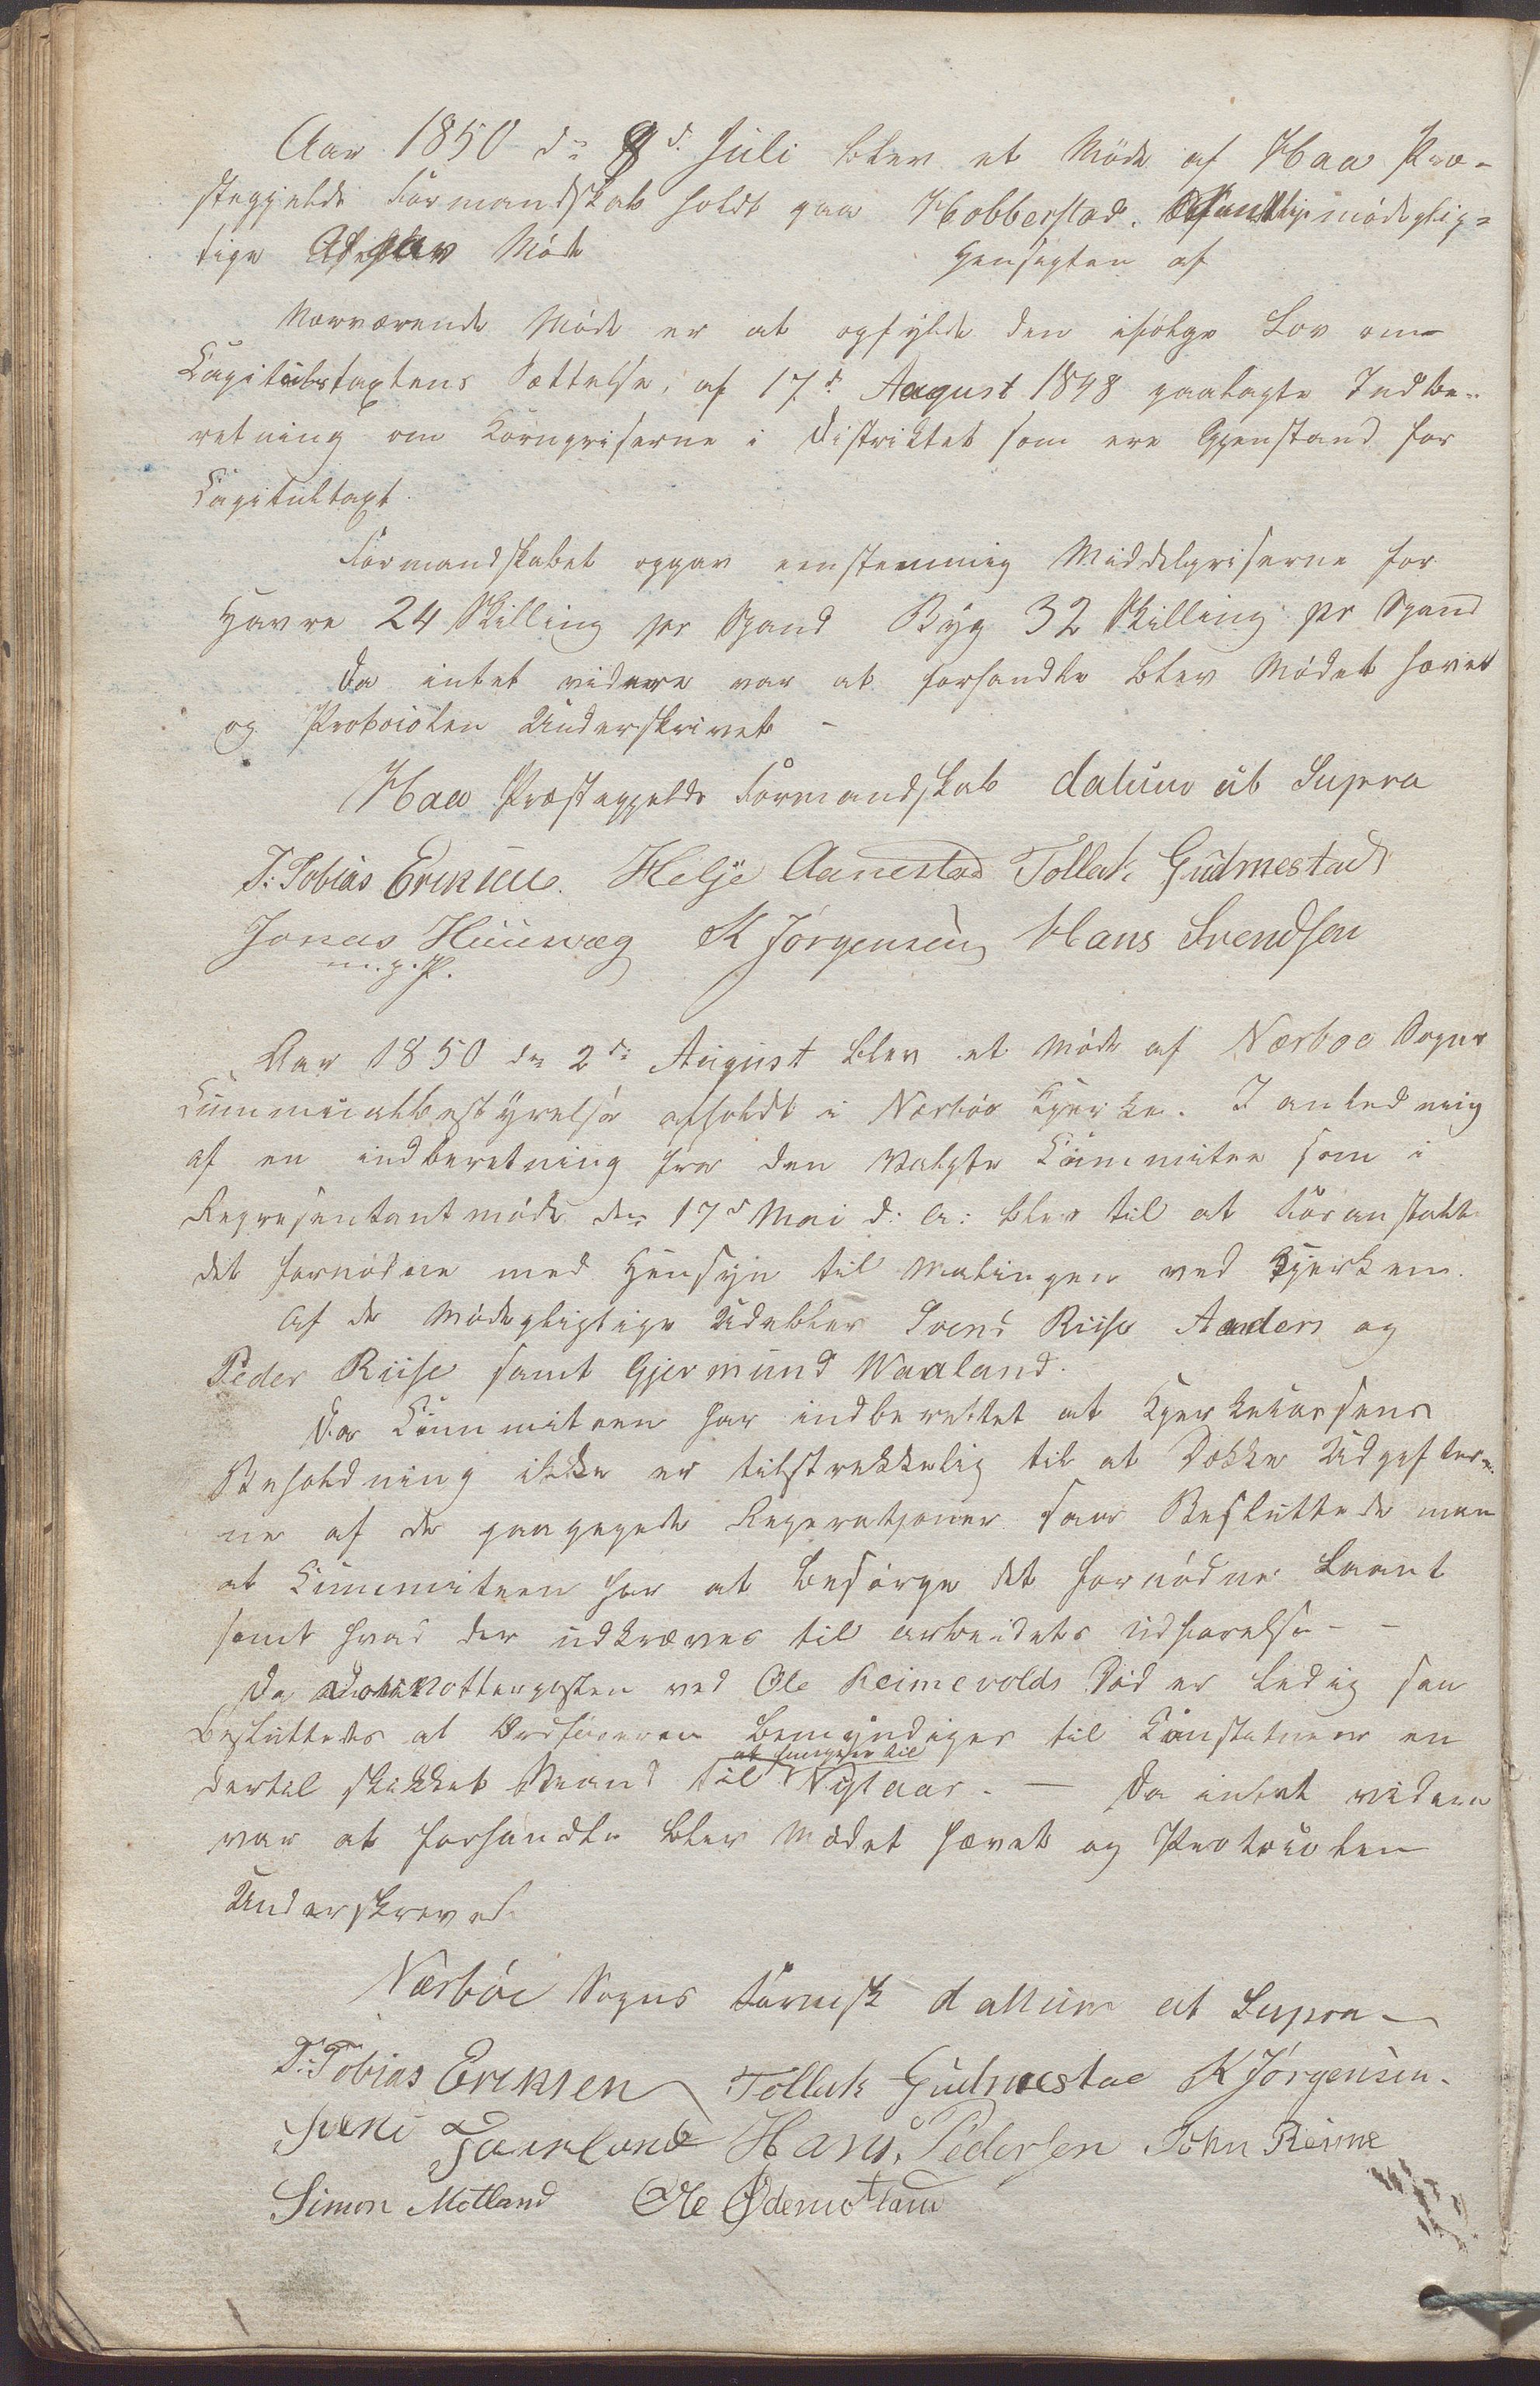 Aar 1850 d: 9d. Juli blev et Möde af Haa Præ-
stegjelds Formandskab holdt paa Hobberstad. Samtlige mödeplig-
tige Möde Hensigten af
Nærværende Möde er at opfylde den ifölge Lov om
Capitulstaxtens Sættelse, af 17d August 1848 paalagte Indbe-
retning om Kornpriserne i Distriktet som ere Gjenstand for
Capitultaxt.
Formandskabet opgav eenstemmig Middelpriserne for
Havre 24 Skilling pr Spand Byg 32 Skilling pr Spand
Da intet videre var at forhandle blev Mödet hævet
og Protocolen Underskrivet -
Haa Præstegjelds Formandskab datum ut Supra
T. Tobias Eriksen. Helje Aanestad Tollak Gudmestad
Jonas Huuwaag K Jörgensen Hans Svendsen
m.p.P.
Aar 1850 den 2d: August blev et Möde af Nærboe Sogns
Cummunalbestyrelse afholdt i Nærböe Kjerke. I anledning
af en indberetning fra den valgte Cummitee som i
Representantmöde den 17d Mai d: A: blev til at Foranstalte
det fornödne med Hensyn til Malingen ved Kjerken.
Af de Mödepligtige Udebleve Svend Riise Anders og
Peder Riise samt Gjermund Waaland.
Da Cummiteen har indberettet at Kjerkekassens
Beholdning ikke er tilstrekkelig til at Dække Udgifter-
ne af de paagegede Reperatjoner saa Besluttede man
at Cummiteen har at besörge det fornödne Laant
samt hvad der udkræves til arbeidets udförelse - -
Da Votterposten ved Ole Reimevolds Död er ledig saa
besluttedes at Ordföreren bemyndiges til Constituere en
at fungere til
dertil skikket Mand til Nytaar. — Da intet videre
var at forhandle blev Mödet hævet og Protocolen
Underskreved
Nærböe Sogns Formsk dattum ut Supra -
T. Tobias Eriksen Tollak Gudmestad K Jörgensen.
Hans Pedersen John Reime
Simon Motland Ole Ødemotland